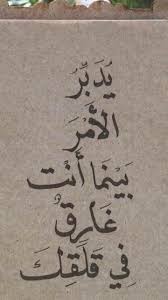 يُدَبِّرُ
الأَمْرَ
بَيْنَمَا أَنْتَ
غَارِقٌ
فِي قَلَقِكَ